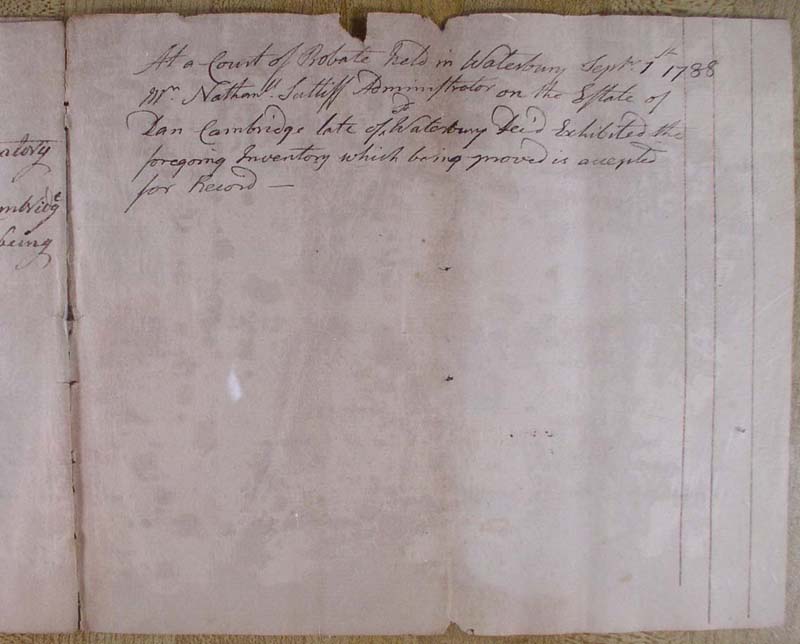 At a Court of Probate held in Waterbury Septr. 1st 1788
Mr. Nathanll. Sutliff Administrator on the Estate of
Dan Cambridge late of sd Waterbury Dec'd Exhibited the
foregoing Inventory which being proved is accepted
for Record —
atory
ambridge
being